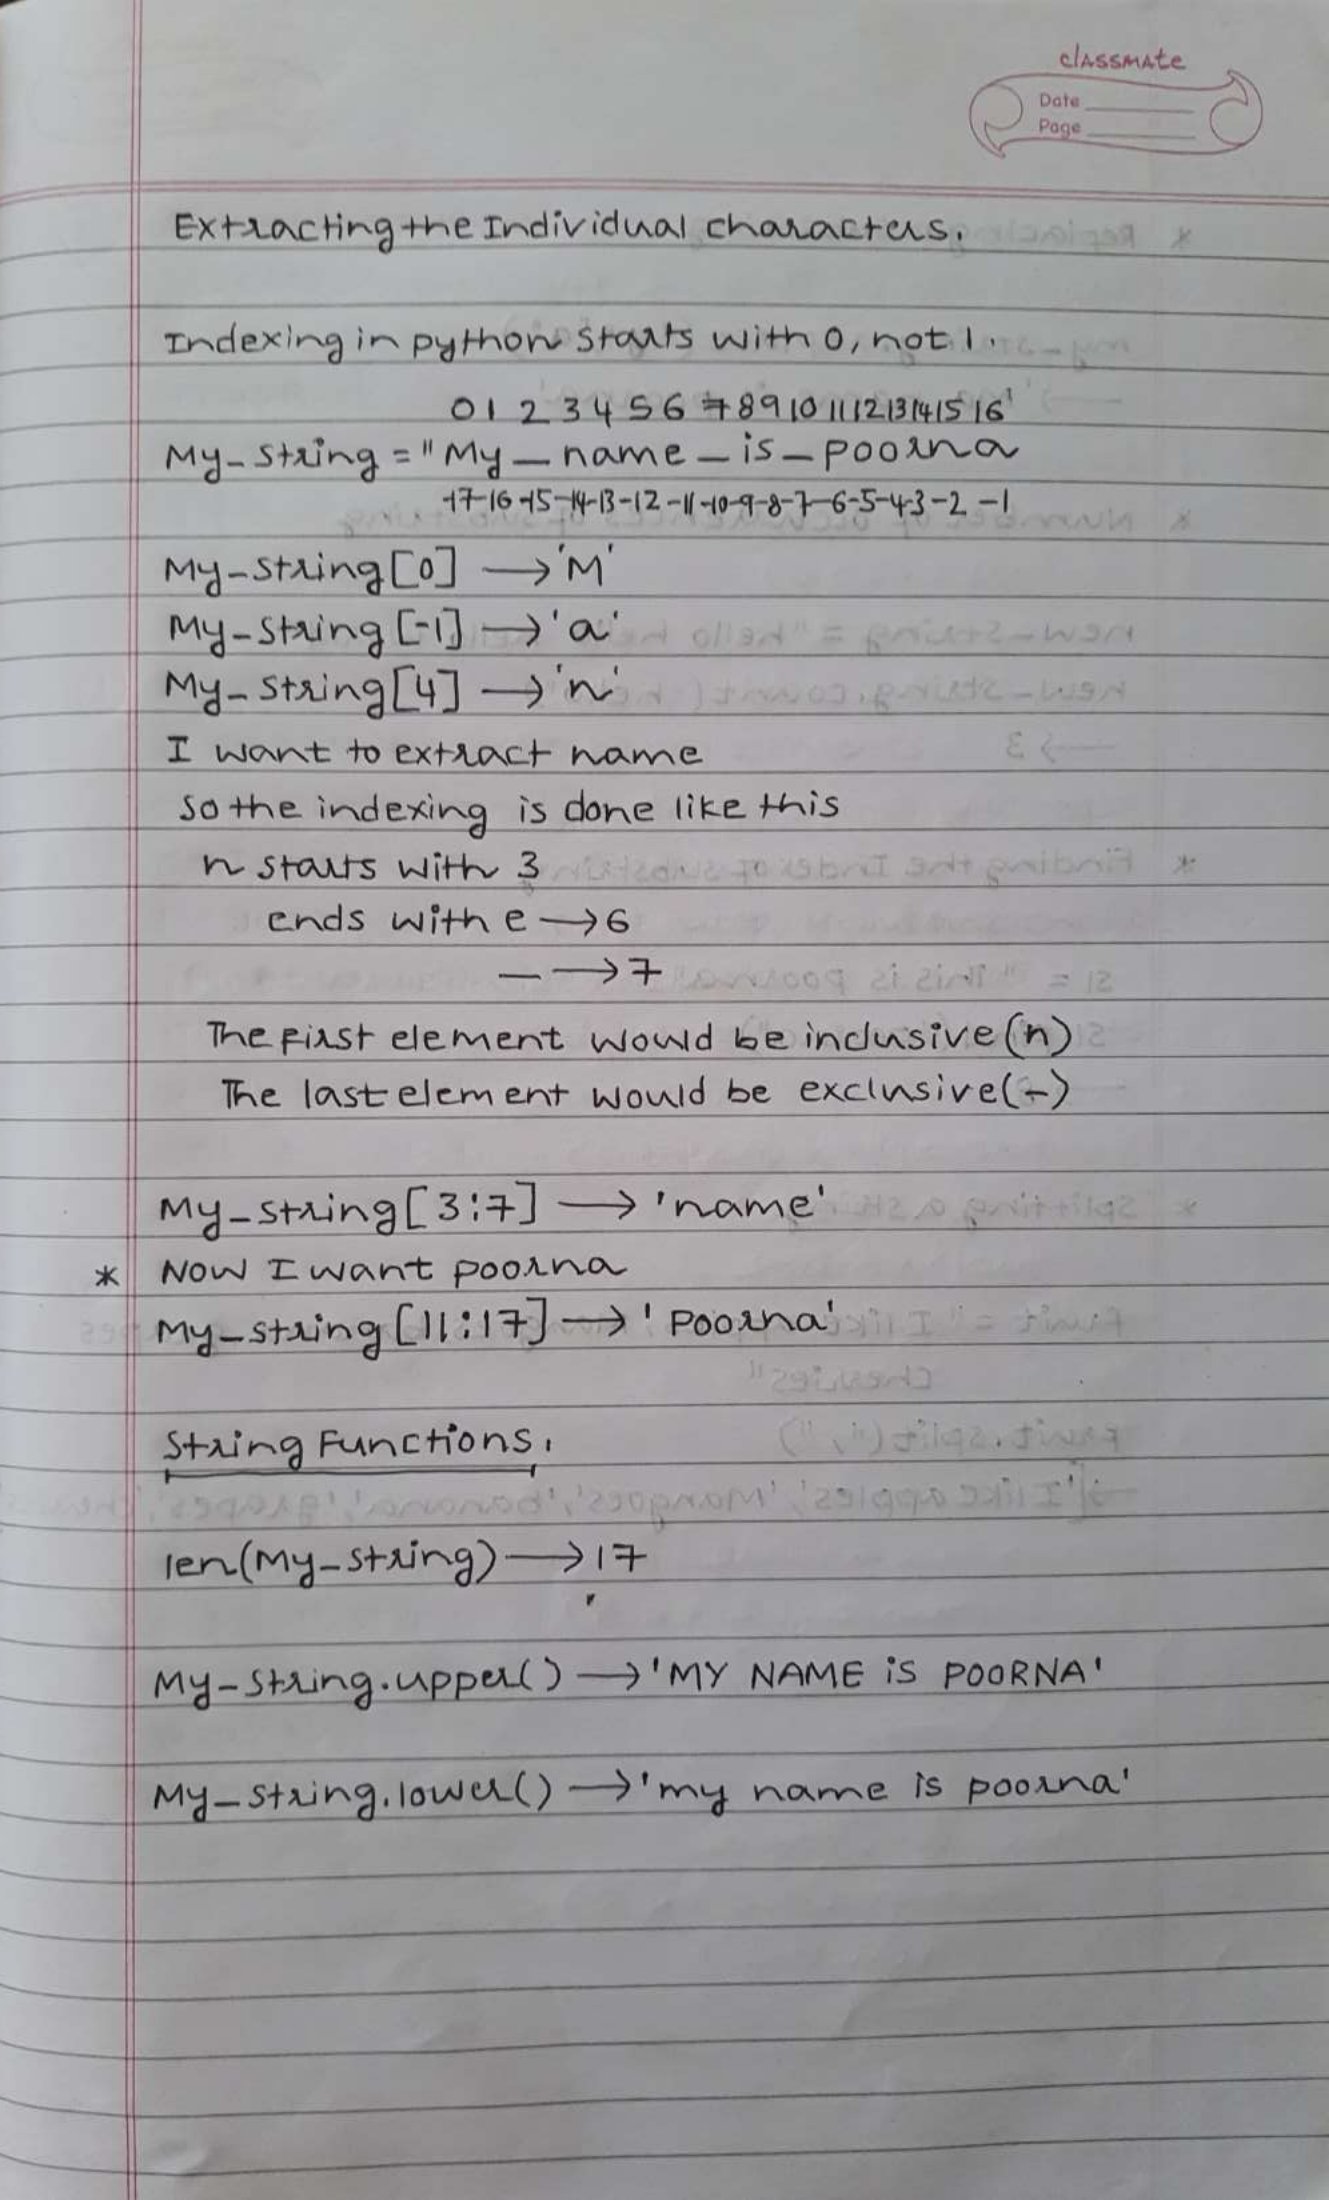 classmate
Date
Page
Extracting the Individual characters.
Indexing in python starts with 0, not 1.
0 1 2 3 4 5 6 7 8 9 10 11 12 13 14 15 16
My_string = "My_name_is_poorna
-17-16-15-14-13-12-11-10-9-8-7-6-5-4-3-2 -1
My_string[0] → 'M'
My_string[-1] → 'a'
My_string[4] → 'n'
I want to extract name
So the indexing is done like this
n starts with 3
ends with e → 6
_ → 7
The first element would be inclusive(n)
The last element would be exclusive(-)
My_string[3:7] → 'name'
* Now I want poorna
My_string[11:17] → 'Poorna'
String Functions.
len(My_string) → 17
My_string.upper() → 'MY NAME iS POORNA'
My_string.lower() → 'my name is poorna'